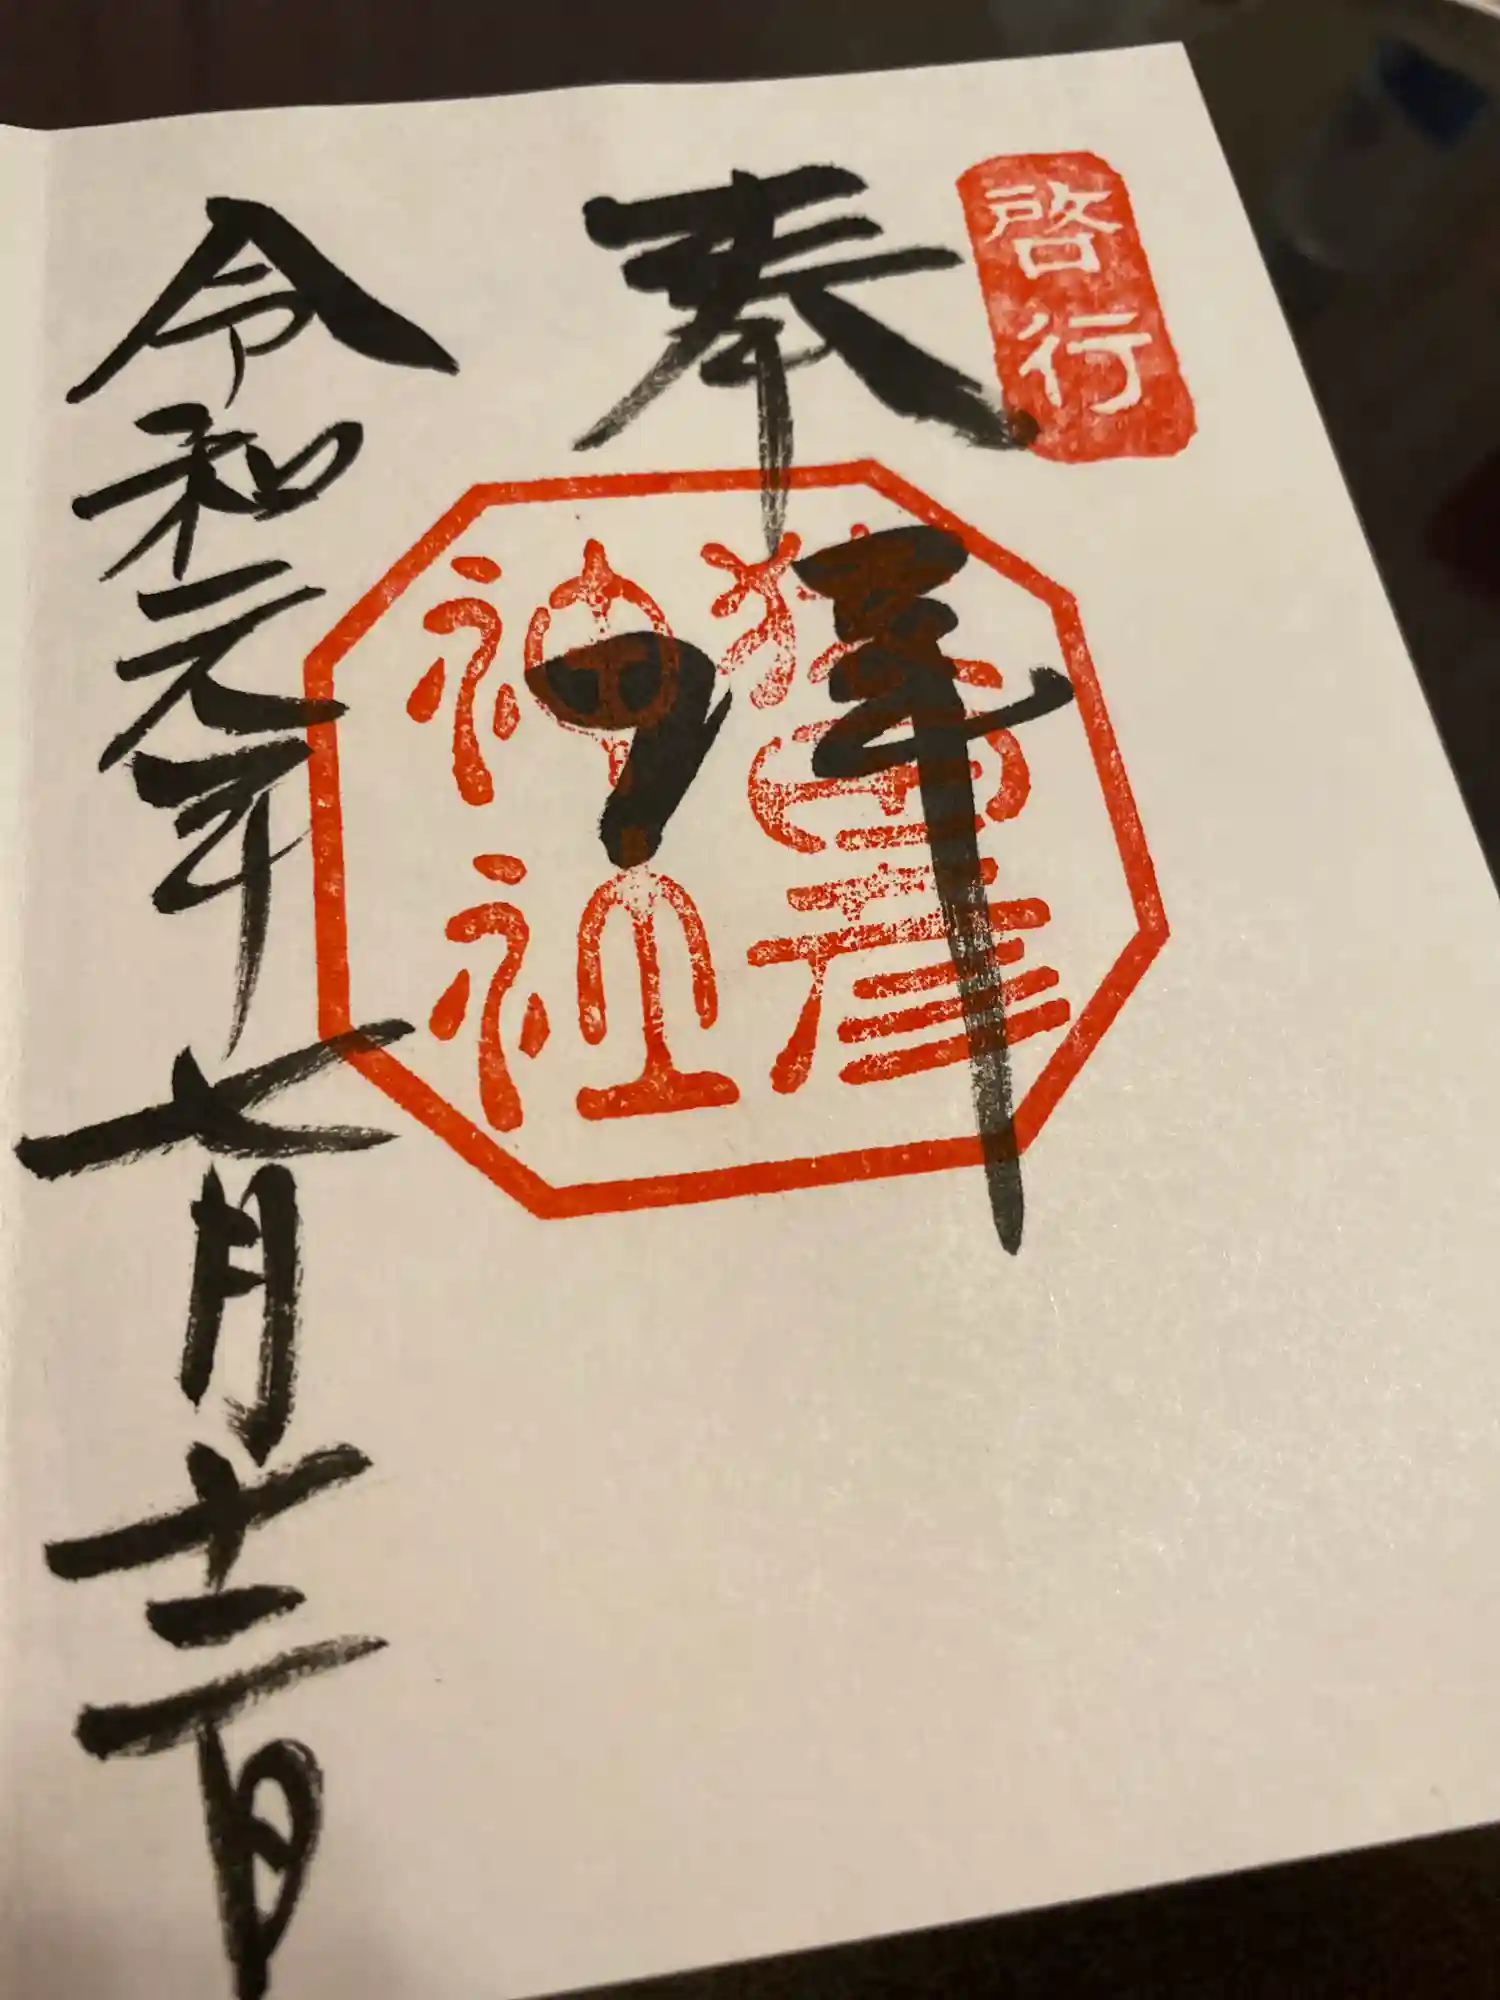 啓行
奉拜
猿田彦
神社
令和元年七月十二日